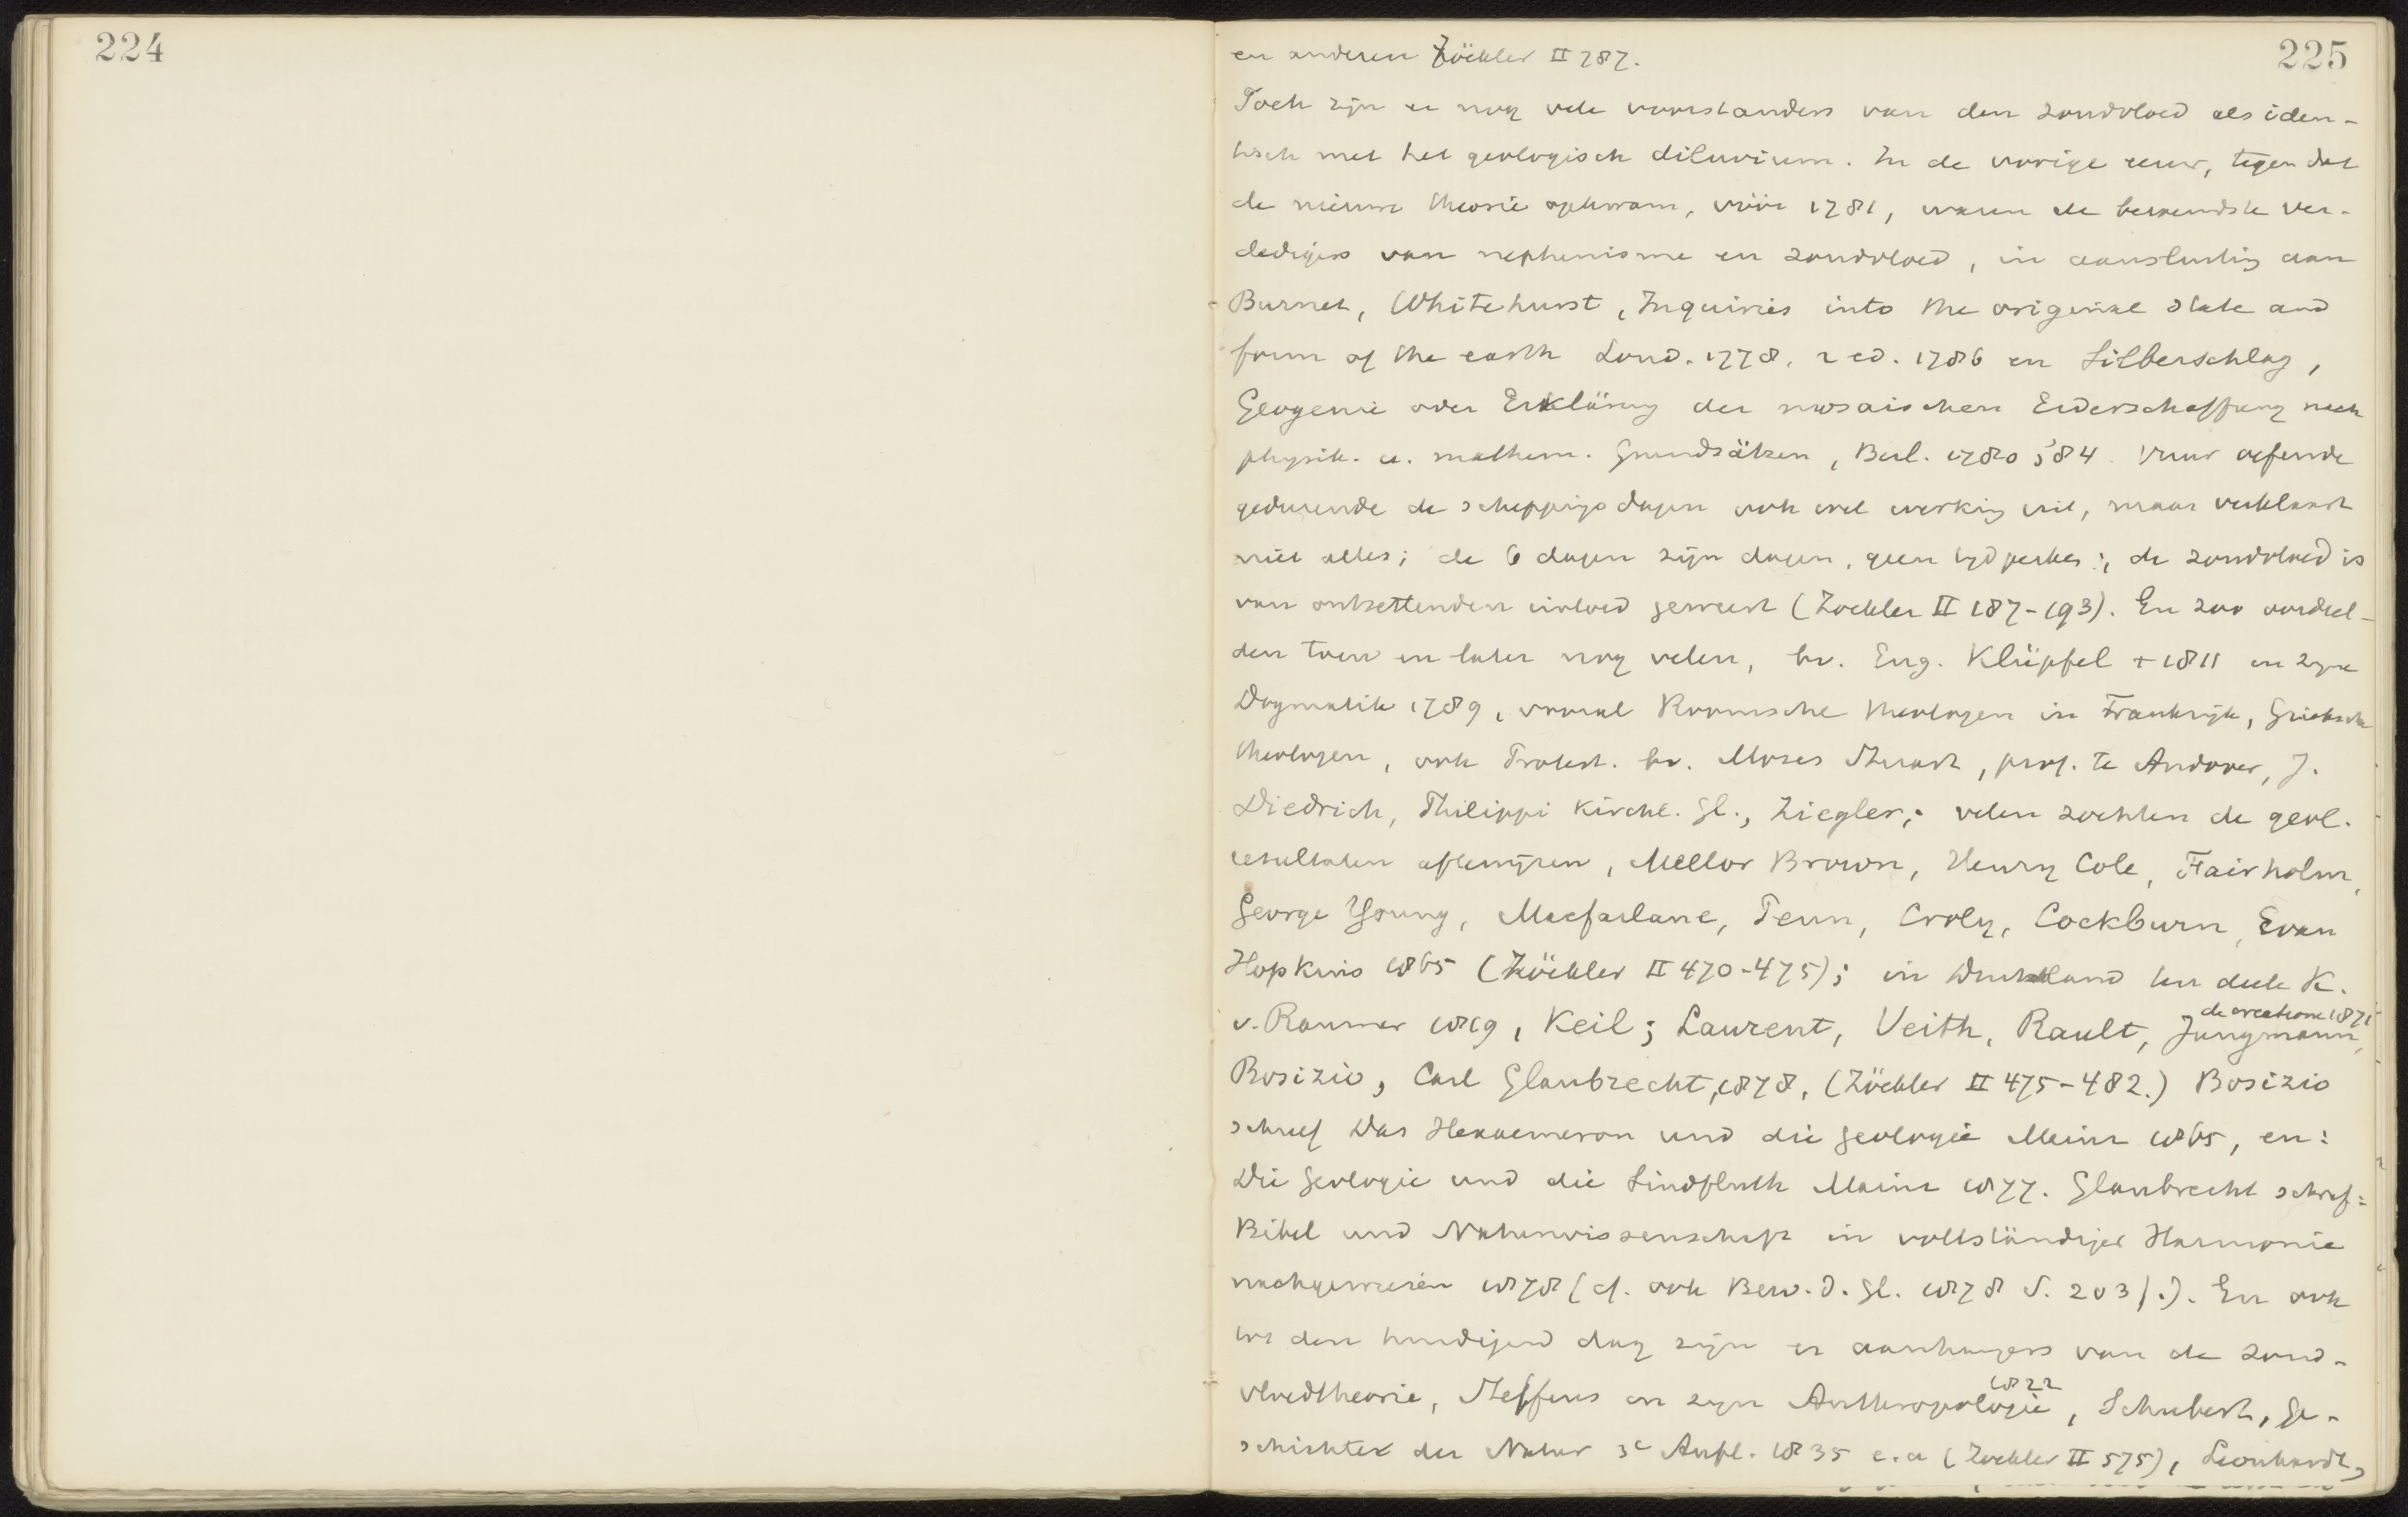 224
225
en anderen Zöckler II 787.
Toch zijn er nog vele voorstanders van den zondvloed als iden-
tisch met het geologisch diluvium. In de vorige eeuw, tegen dat
de nieuwe theorie opkwam, vóór 1781, waren de bekendste ver-
dedigers van nephenisme en zondvloed, in aansluiting aan
Burnet, Whitehurst, Inquiries into the original state and
form of the earth Lond. 1778, 2 ed. 1786 en Silberschlag,
Geogenie oder Erklärung der mosaischen Erderschaffung nach
physik. u. mathem. Grundsätzen, Berl. 1780, '84. Vuur oefende
gedurende de scheppingsdagen ook wel werking uit, maar verklaart
niet alles; de 6 dagen zijn dagen, geen tijdperken; de zondvloed is
van ontzettenden invloed geweest (Zöckler II 187-193). En zoo oordeel-
den toen en later nog velen, bv. Eng. Klüpfel + 1811 in zijne
Dogmatik 1789, vooral Roomsche theologen in Frankrijk, Grieksche
theologen, ook Protest. bv. Moses Stuart, prof. te Andover, J.
Diedrich, Philippi Kirchl. Gl., Ziegler; velen zochten de geol.
resultaten aftewijzen, Mellor Brown, Henry Cole, Fairholm,
George Young, Macfarlane, Penn, Croly, Cockburn, Evan
Hopkins 1865 (Zöckler II 470-475); in Duitschland ten deele K.
v. Raumer 1819, Keil; Laurent, Veith, Rault, Jungmann, de creatione 1871
Bosizio, Carl Glaubrecht, 1878, (Zöckler II 475-482.) Bosizio
schreef Das Hexaemeron und die Geologie Mainz 1865, en:
Die Geologie und die Sindfluth Mainz 1877. Glaubrecht schref:
Bibel und Naturwissenschaft in vollständiger Harmonie
nachgewiesen 1878 (cf. ook Bew. d. Gl. 1878 S. 203 f.). En ook
tot den huidigen dag zijn er aanhangers van de zond-
vloedtheorie, Steffens in zijn Anthropologie 1822, Schubert, Ge-
schichte der Natur 3e Aufl. 1835 e.a (Zöckler II 575), Leonhardt,